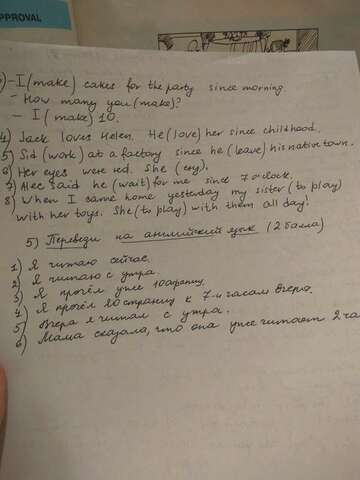 APPROVAL
) - I (make) cakes for the party since morning
- How many you (make)?
- I (make) 10.
4) Jack loves Helen. He (love) her since childhood.
5) Sid (work) at a factory since he (leave) his native town.
6) Her eyes were red. She (cry).
7) Alec said he (wait) for me since 7 o'clock.
8) When I same home yesterday my sister (to play)
with her toys. She (to play) with them all day!
5) Переведи на английский язык (2 балла)
1) Я читаю сейчас.
2) Я читаю с утра.
3) Я прочёл уже 10 страниц.
4) Я прочёл 10 страниц к 7-и часам вчера.
5) Вчера я читал с утра.
6) Мама сказала, что она уже читает 2 ча